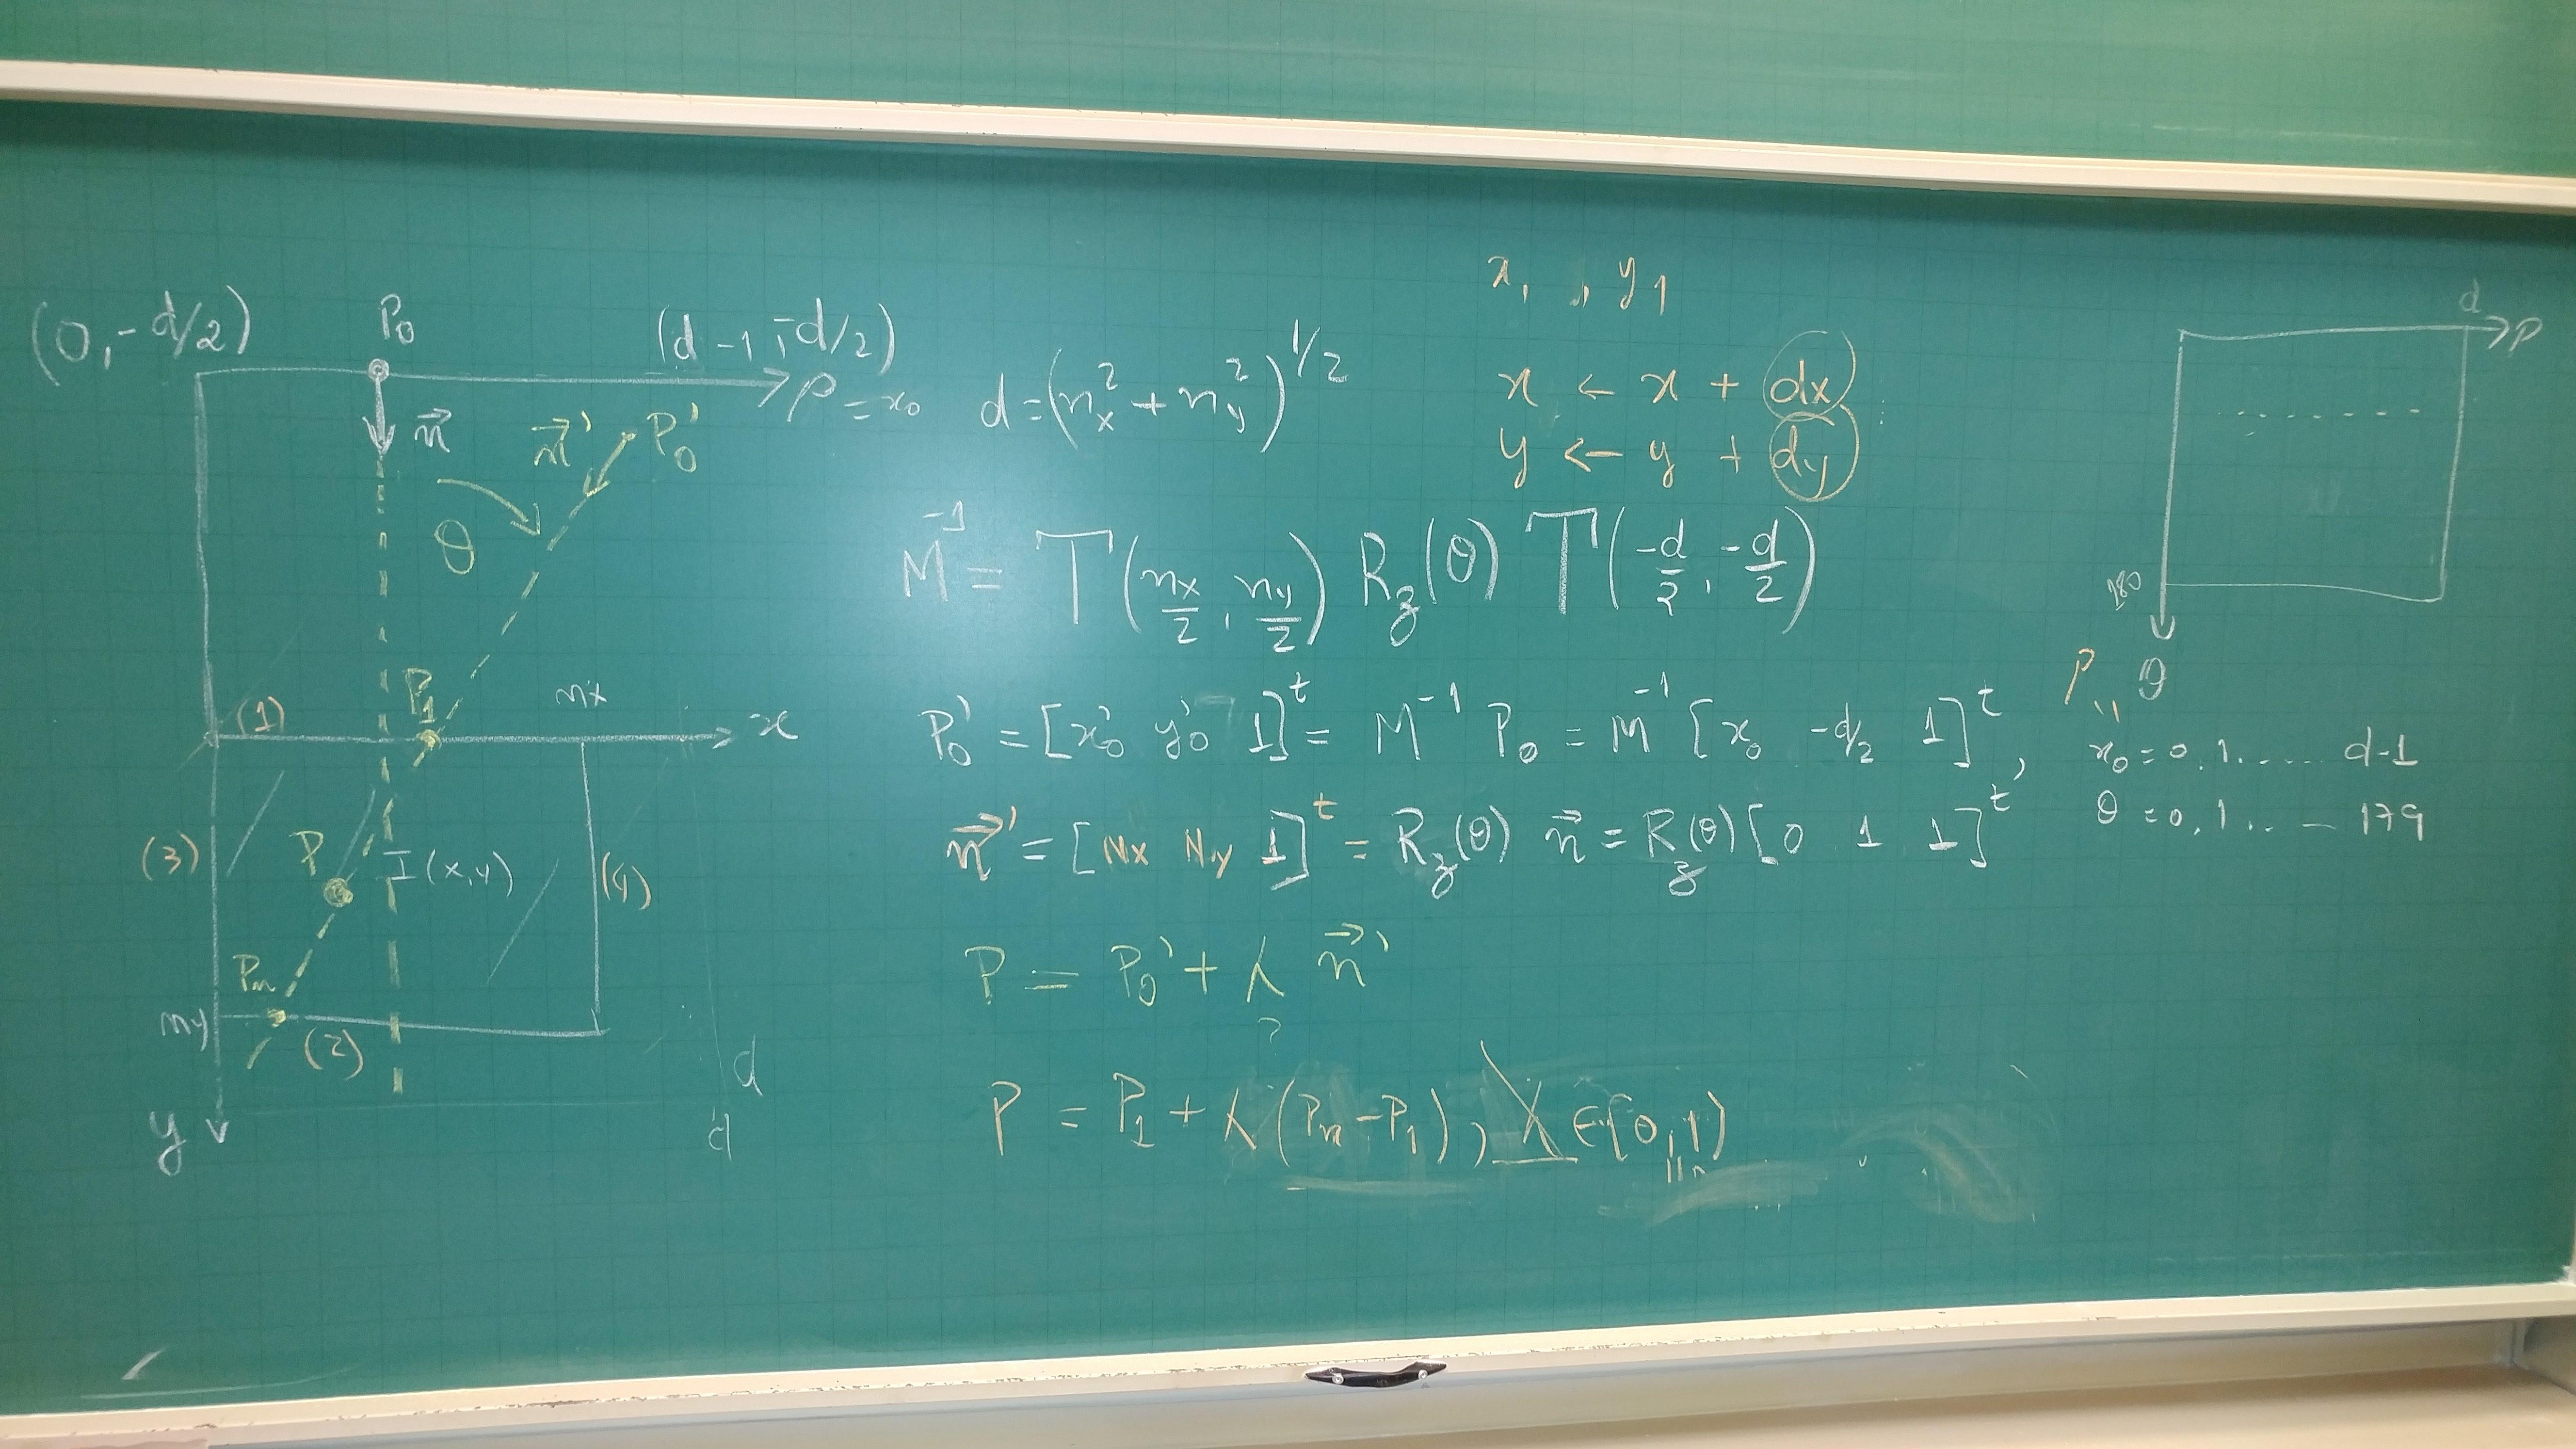 (0, -d/2)
P₀
(d-1, -d/2)
ρ = x₀
n⃗
n⃗'
P₀'
θ
P₁
nx
x
(1)
(3)
P
I(x,y)
(4)
Pn
ny
(2)
y
d
d
d = (nx² + ny²)^1/2
x₁, y₁
x ← x + dx
y ← y + dy
M⁻¹ = T(nx/2, ny/2) Rz(θ) T(-d/2, -d/2)
P₀' = [x₀' y₀' 1]ᵗ = M⁻¹ P₀ = M⁻¹ [x₀ -d/2 1]ᵗ,
n⃗' = [Nx Ny 1]ᵗ = Rz(θ) n⃗ = Rz(θ) [0 1 1]ᵗ
P = P₀' + λ n⃗'
?
P = P₁ + λ (Pn - P₁), λ ∈ [0, 1)
d
ρ
180
θ
ρ,
x₀ = 0, 1, ..... d-1
θ = 0, 1 .. — 179